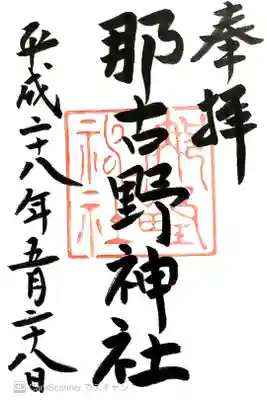 奉拝
那古野神社
平成二十八年五月二十八日
CS CamScanner でスキャン